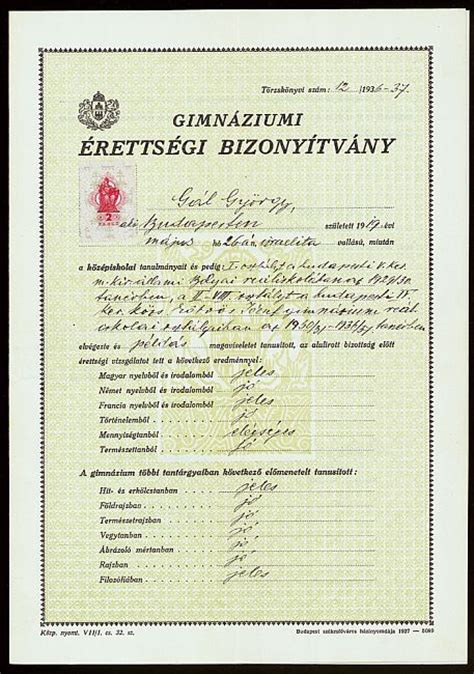 Törzskönyvi szám: 12 /1936-37.
GIMNÁZIUMI
ÉRETTSÉGI BIZONYÍTVÁNY
2
Gál György,
aki Budapesten született 1919. évi
május hó 26-án, izraelita vallású, miután
a középiskolai tanulmányait és pedig: I. osztályt a budapesti V. ker.
m. kir. állami Bolyai reáliskolában az 1929/30.
tanévben, a II-VIII. osztályt a budapesti IV.
ker. közs. Eötvös József gimnázium reál
iskolai osztályaiban az 1930/31-1936/37. tanévben
elvégezte és példás magaviseletet tanusított, az alulírott bizottság előtt
érettségi vizsgálatot tett a következő eredménnyel:
Magyar nyelvből és irodalomból jeles
Német nyelvből és irodalomból jó
Francia nyelvből és irodalomból jeles
Történelemből jó
Mennyiségtanból elégséges
Természettanból jó
A gimnázium többi tantárgyaiban következő előmenetelt tanusított:
Hit- és erkölcstanban jeles
Földrajzban jó
Természetrajzban jó
Vegytanban jó
Ábrázoló mértanban jó
Rajzban jó
Filozófiában jeles
Közp. nyomt. VII/1. cs. 32. sz.
Budapest székesfőváros házinyomdája 1937